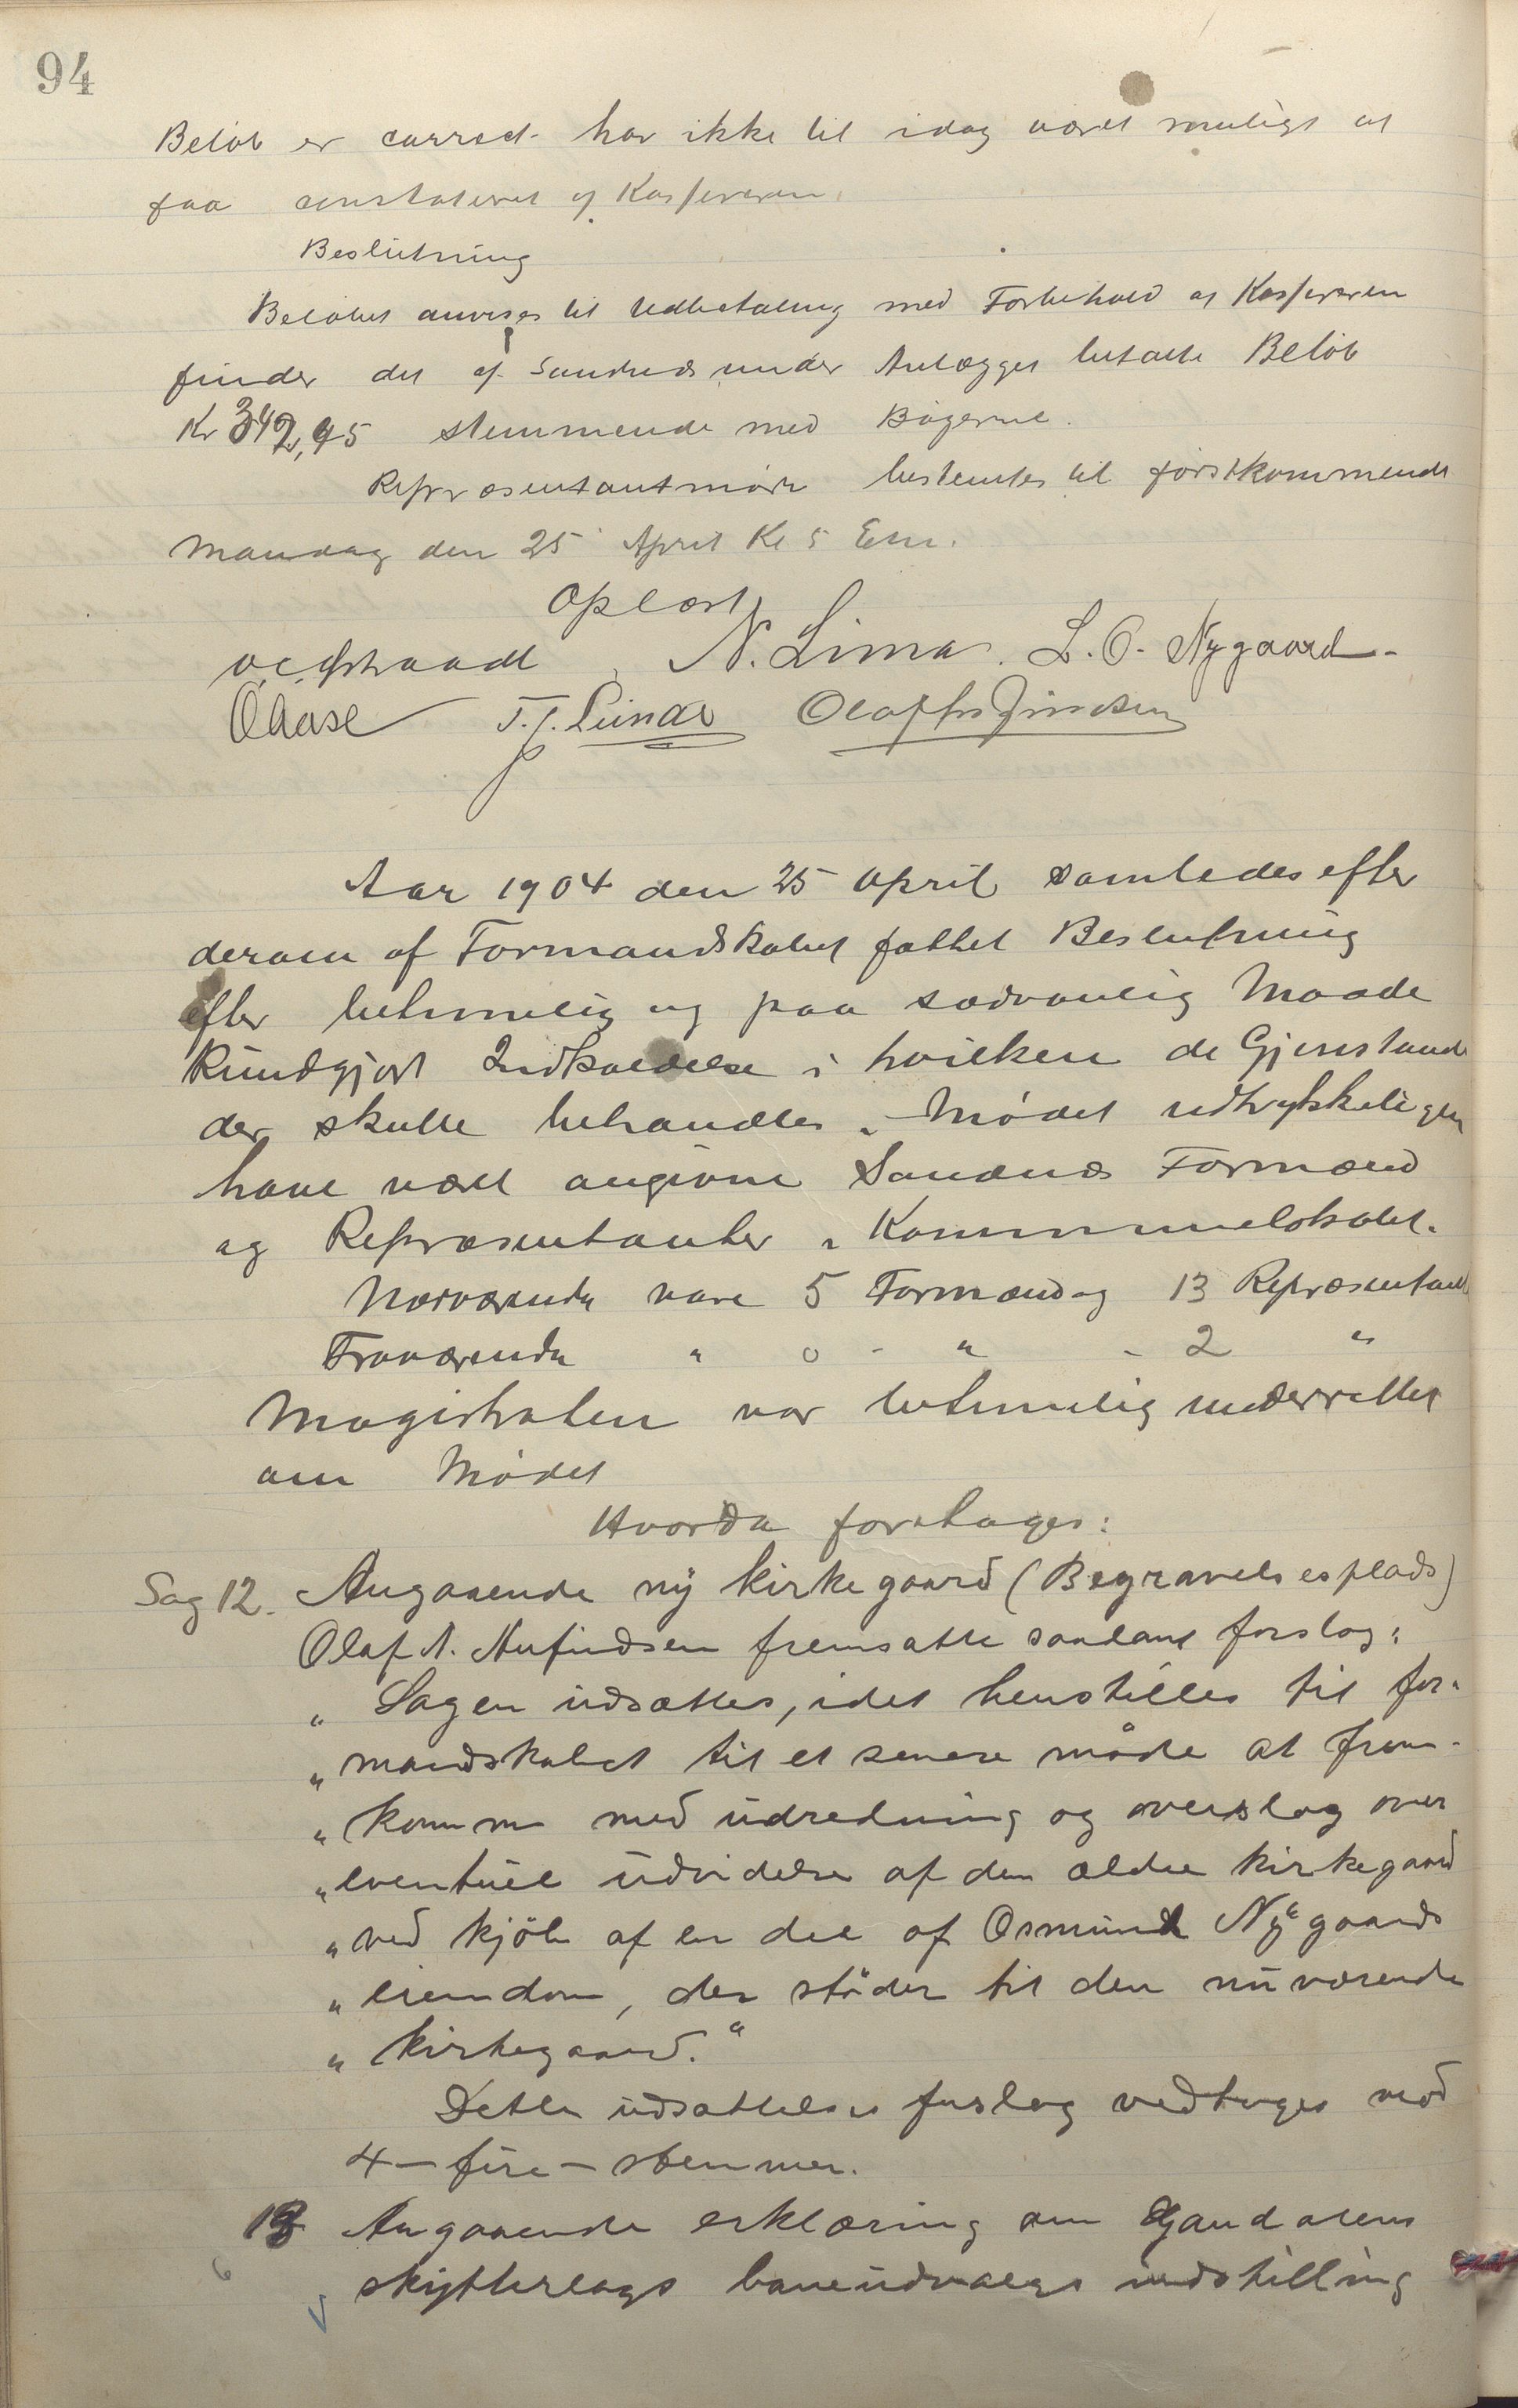 94
Beløb er correct har ikke til idag været muligt at
faa constateret af Kassereren.
Beslutning
Beløbet anvises til Udbetaling med Forbehold at Kassereren
finder det af Sandnes under Anlægget betalte Beløb
Kr 342,95 stemmende med Bøgerne.
Repræsentantmøde bestemtes til førstkommende
Mandag den 25 April Kl 5 Em.
Oplæst
N. Lima. L. O. Nygaard.
O Aase T. T. Lunde
Aar 1904 den 25 April samledes efter
derom af Formandskabet fattet Beslutning
efter betimelig og paa sædvanlig Maade
kundgjort Indkaldelse i hvilken de Gjenstande
der skulle behandles i Mødet udtrykkeligen
have været angivne Sandnes Formænd
og Repræsentanter i Kommunelokalet.
Nærværende vare 5 Formænd og 13 Repræsentanter
Fraværende " 0 - " - 2 "
Magistraten var betimelig underrettet
om Mødet
Hvorda foretages:
Sag 12. Angaaende ny kirkegaard (Begravelsesplads)
Olaf A. Aufindsen fremsatte saadant forslag:
" Sagen udsættes, idet henstilles til for-
" mandskabet til et senere møde at frem-
" komme med udredning og overslag over
" eventuel udvidelse af den ældre kirkegaard
" ved kjøb af en del af Osmund Nygaards
" eiendom, der støder til den nuværende
" kirkegaard."
Dette udsættelsesforslag vedtoges mod
4 - fire - stemmer.
13 Angaaende erklæring om Gjandalens
skytterlags baneudvalgs indstilling